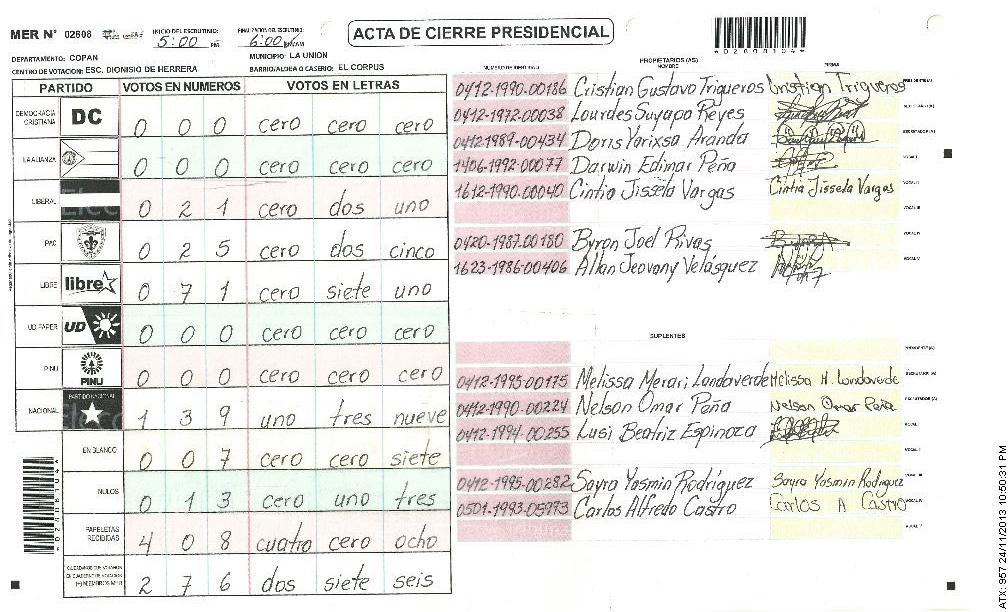 MER N° 02608
INICIO DEL ESCRUTINIO: 5:00 PM
FINALIZACION DEL ESCRUTINIO: 6:00
ACTA DE CIERRE PRESIDENCIAL
*0260804*
DEPARTAMENTO: COPAN
MUNICIPIO: LA UNION
CENTRO DE VOTACION: ESC. DIONISIO DE HERRERA
BARRIO/ALDEA O CASERIO: EL CORPUS
PARTIDO VOTOS EN NUMEROS VOTOS EN LETRAS
DEMOCRACIA CRISTIANA DC 0 0 0 cero cero cero
LA ALIANZA 0 0 0 cero cero cero
LIBERAL 0 2 1 cero dos uno
PAC 0 2 5 cero dos cinco
LIBRE libre 0 7 1 cero siete uno
UD FAPER UD 0 0 0 cero cero cero
PINU PINU 0 0 0 cero cero cero
NACIONAL PARTIDO NACIONAL 1 3 9 uno tres nueve
EN BLANCO 0 0 7 cero cero siete
NULOS 0 1 3 cero uno tres
PAPELETAS RECIBIDAS 4 0 8 cuatro cero ocho
CIUDADANOS QUE VOTARON EN CUADERNO DE VOTACION (+) MIEMBROS MER 2 7 6 dos siete seis
NUMERO DE IDENTIDAD
PROPIETARIOS (AS)
NOMBRE
FIRMA
0412-1990-00186 Cristian Gustavo Trigueros Cristian Trigueros PRESIDENTE(A)
0412-1972-00038 Lourdes Suyapa Reyes SECRETARIO(A)
0412-1989-00434 Doris Yarixsa Aranda ESCRUTADOR(A)
1406-1992-00077 Darwin Edimar Peña VOCAL I
1612-1990-00040 Cintia Jisseta Vargas Cintia Jisseta Vargas VOCAL II
VOCAL III
0420-1987-00180 Byron Joel Rivas VOCAL IV
1623-1986-00406 Allan Jeovany Velásquez VOCAL V
SUPLENTES
PRESIDENTE(A)
0412-1995-00175 Melissa Merari Landaverde Melissa M. Landaverde SECRETARIO(A)
0412-1990-00224 Nelson Omar Peña Nelson Omar Peña ESCRUTADOR(A)
0412-1994-00255 Lusi Beatriz Espinoza VOCAL I
VOCAL II
0412-1995-00282 Sayra Yasmin Rodríguez Sayra Yasmin Rodriguez VOCAL III
0501-1993-05993 Carlos Alfredo Castro Carlos A Castro VOCAL IV
VOCAL V
ATX: 957 24/11/2013 10:50:31 PM